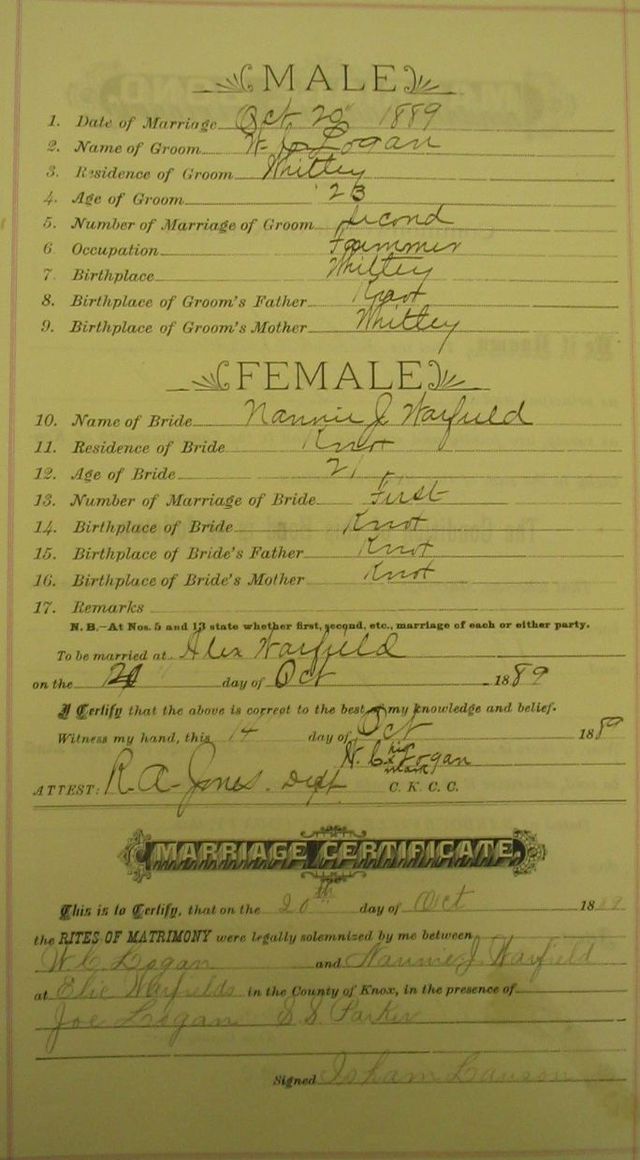 MALE
1. Date of Marriage Oct 20" 1889
2. Name of Groom W C Logan
3. Residence of Groom Whitley
4. Age of Groom 23
5. Number of Marriage of Groom Second
6 Occupation Farmmer
7. Birthplace Whitley
8. Birthplace of Groom's Father Knox
9. Birthplace of Groom's Mother Whitley
FEMALE
10. Name of Bride Nannie J Warfield
11. Residence of Bride Knox
12. Age of Bride 21
13. Number of Marriage of Bride First
14. Birthplace of Bride Knox
15. Birthplace of Bride's Father Knox
16. Birthplace of Bride's Mother Knox
17. Remarks
N. B.—At Nos. 5 and 13 state whether first, second, etc., marriage of each or either party.
To be married at Alex Warfield
on the 20 day of Oct 1889
I Certify that the above is correct to the best of my knowledge and belief.
Witness my hand, this 14 day of Oct 1889
W. C. his mark Logan
ATTEST: R. A. Jones. Dept C. K. C. C.
MARRIAGE CERTIFICATE.
This is to Certify, that on the 20th day of Oct 1889
the RITES OF MATRIMONY were legally solemnized by me between
W. C. Logan and Nannie J Warfield
at Elic Warfields in the County of Knox, in the presence of
Joe Logan S. S. Parker
Signed Isham Lawson